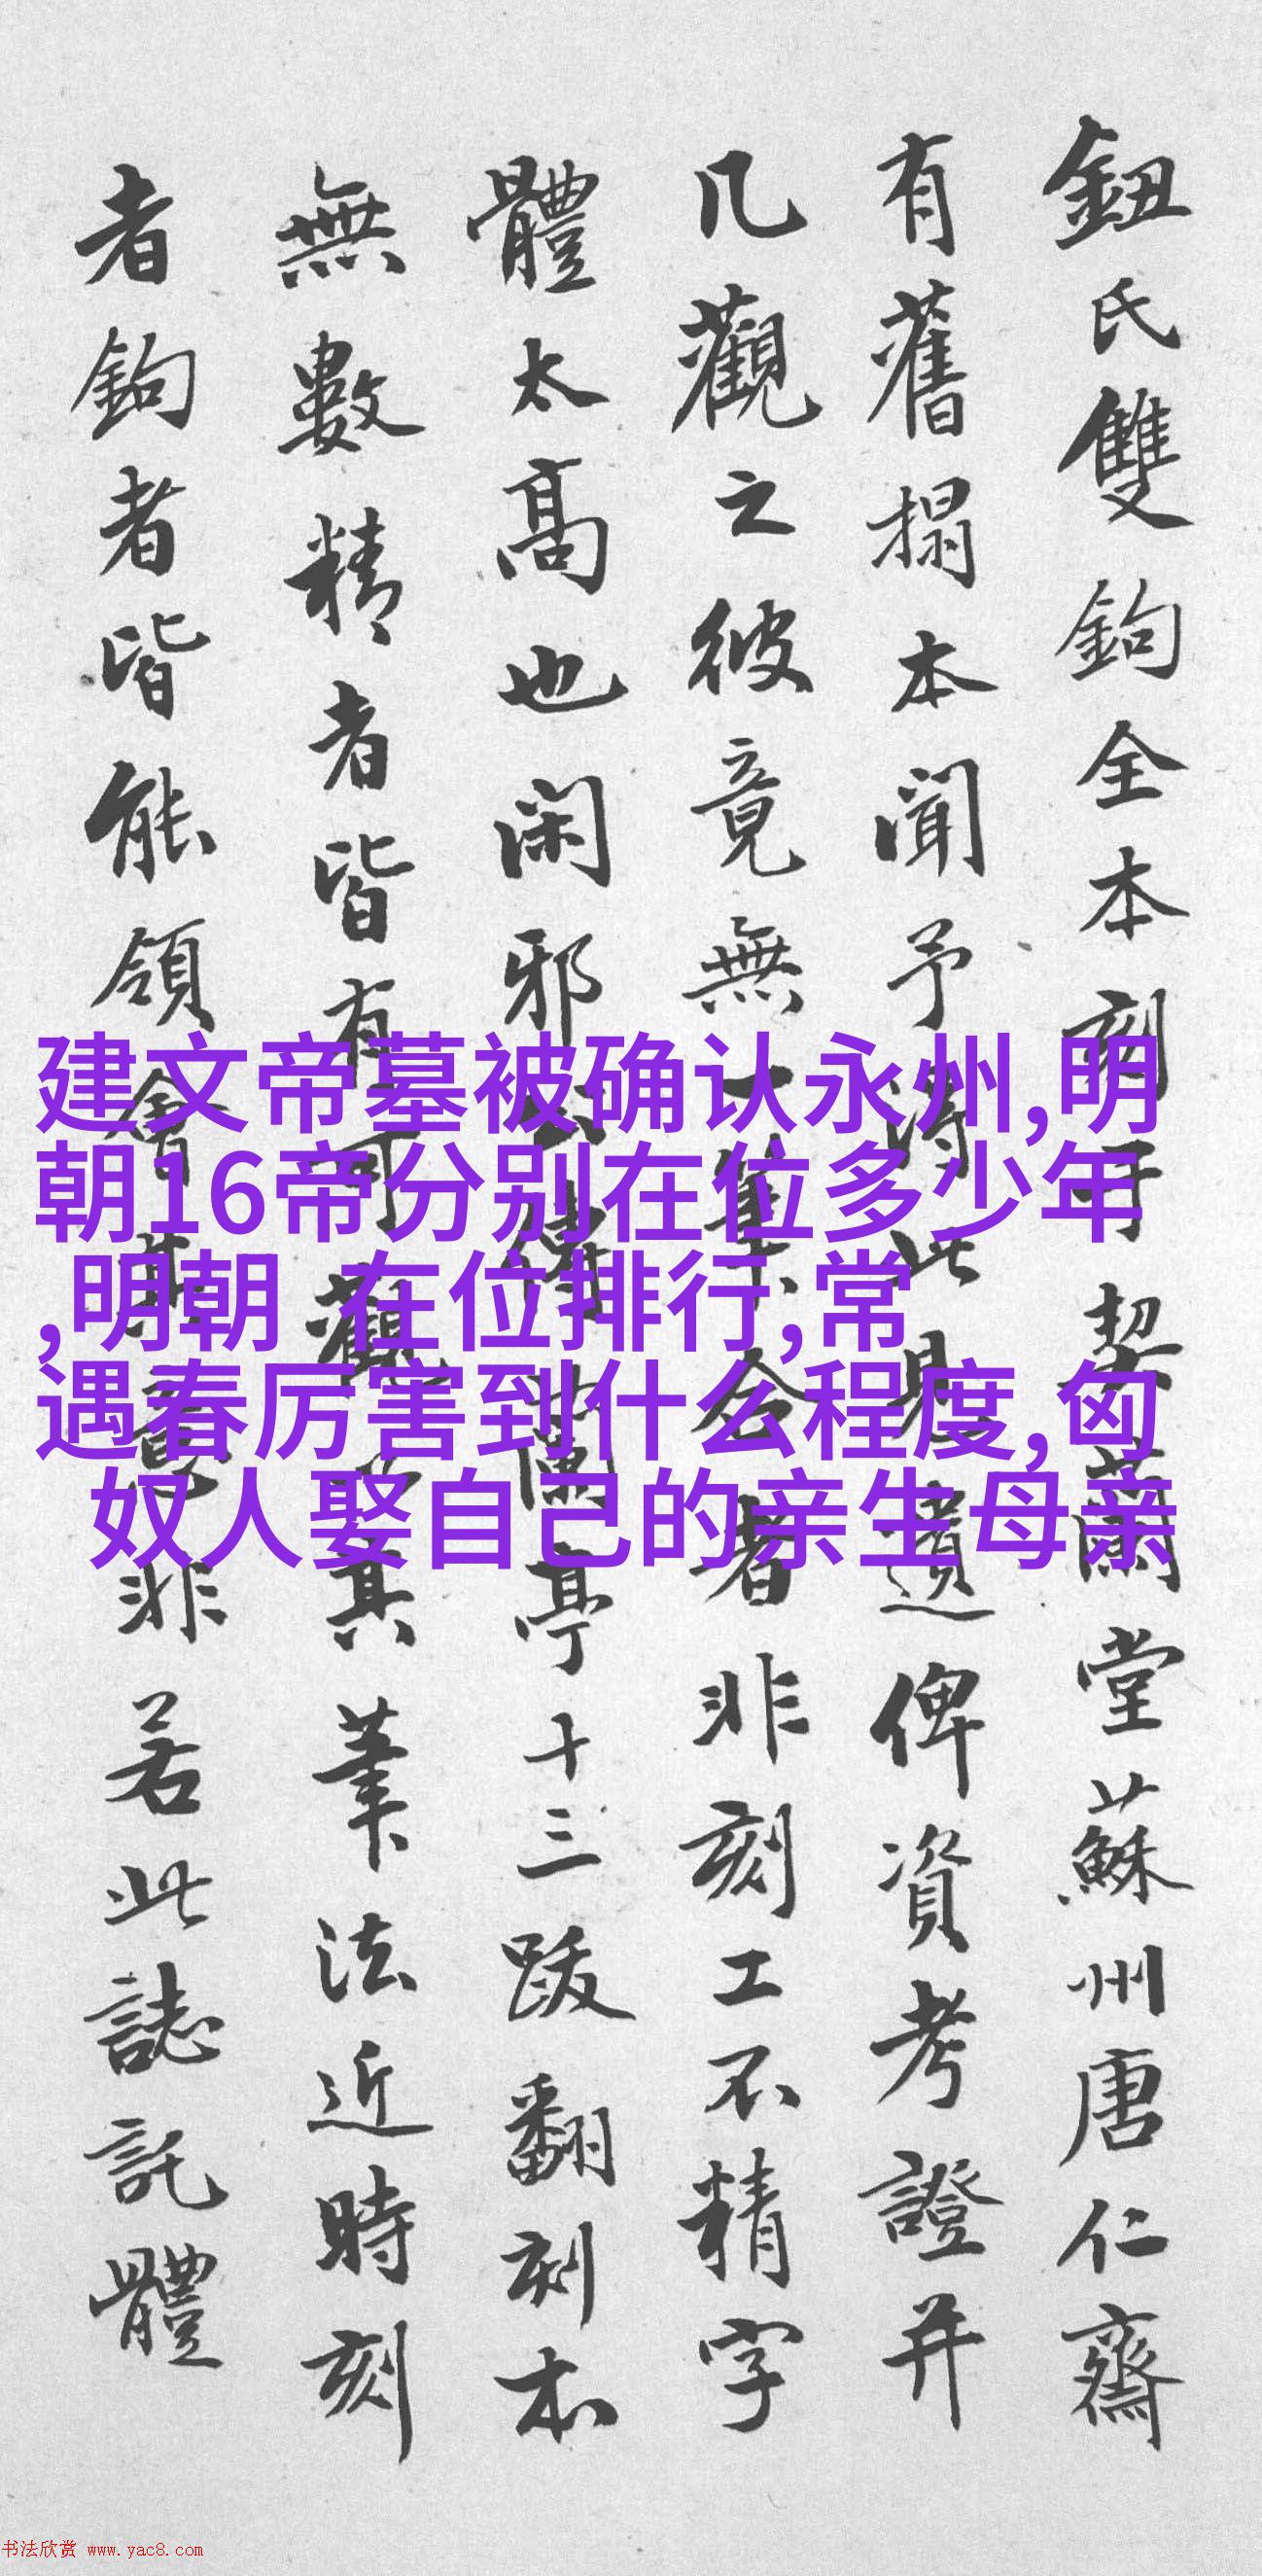 鈕氏雙鉤全本刻于契蘭堂蘇州唐仁齋
有舊搨本聞予得此見遺俾資考證并
几觀之彼竟無一隻合者非刻工不精字
體太高也閑邪公傳蘭亭十三跋翻刻本
無數精者皆有可觀其筆法近時刻
者鉤者皆能領會其意非若此誌託體
建文帝墓被确认永州,明
朝16帝分别在位多少年
,明朝 在位排行,常
遇春厉害到什么程度,匈
奴人娶自己的亲生母亲
书法欣赏 www.yac8.com